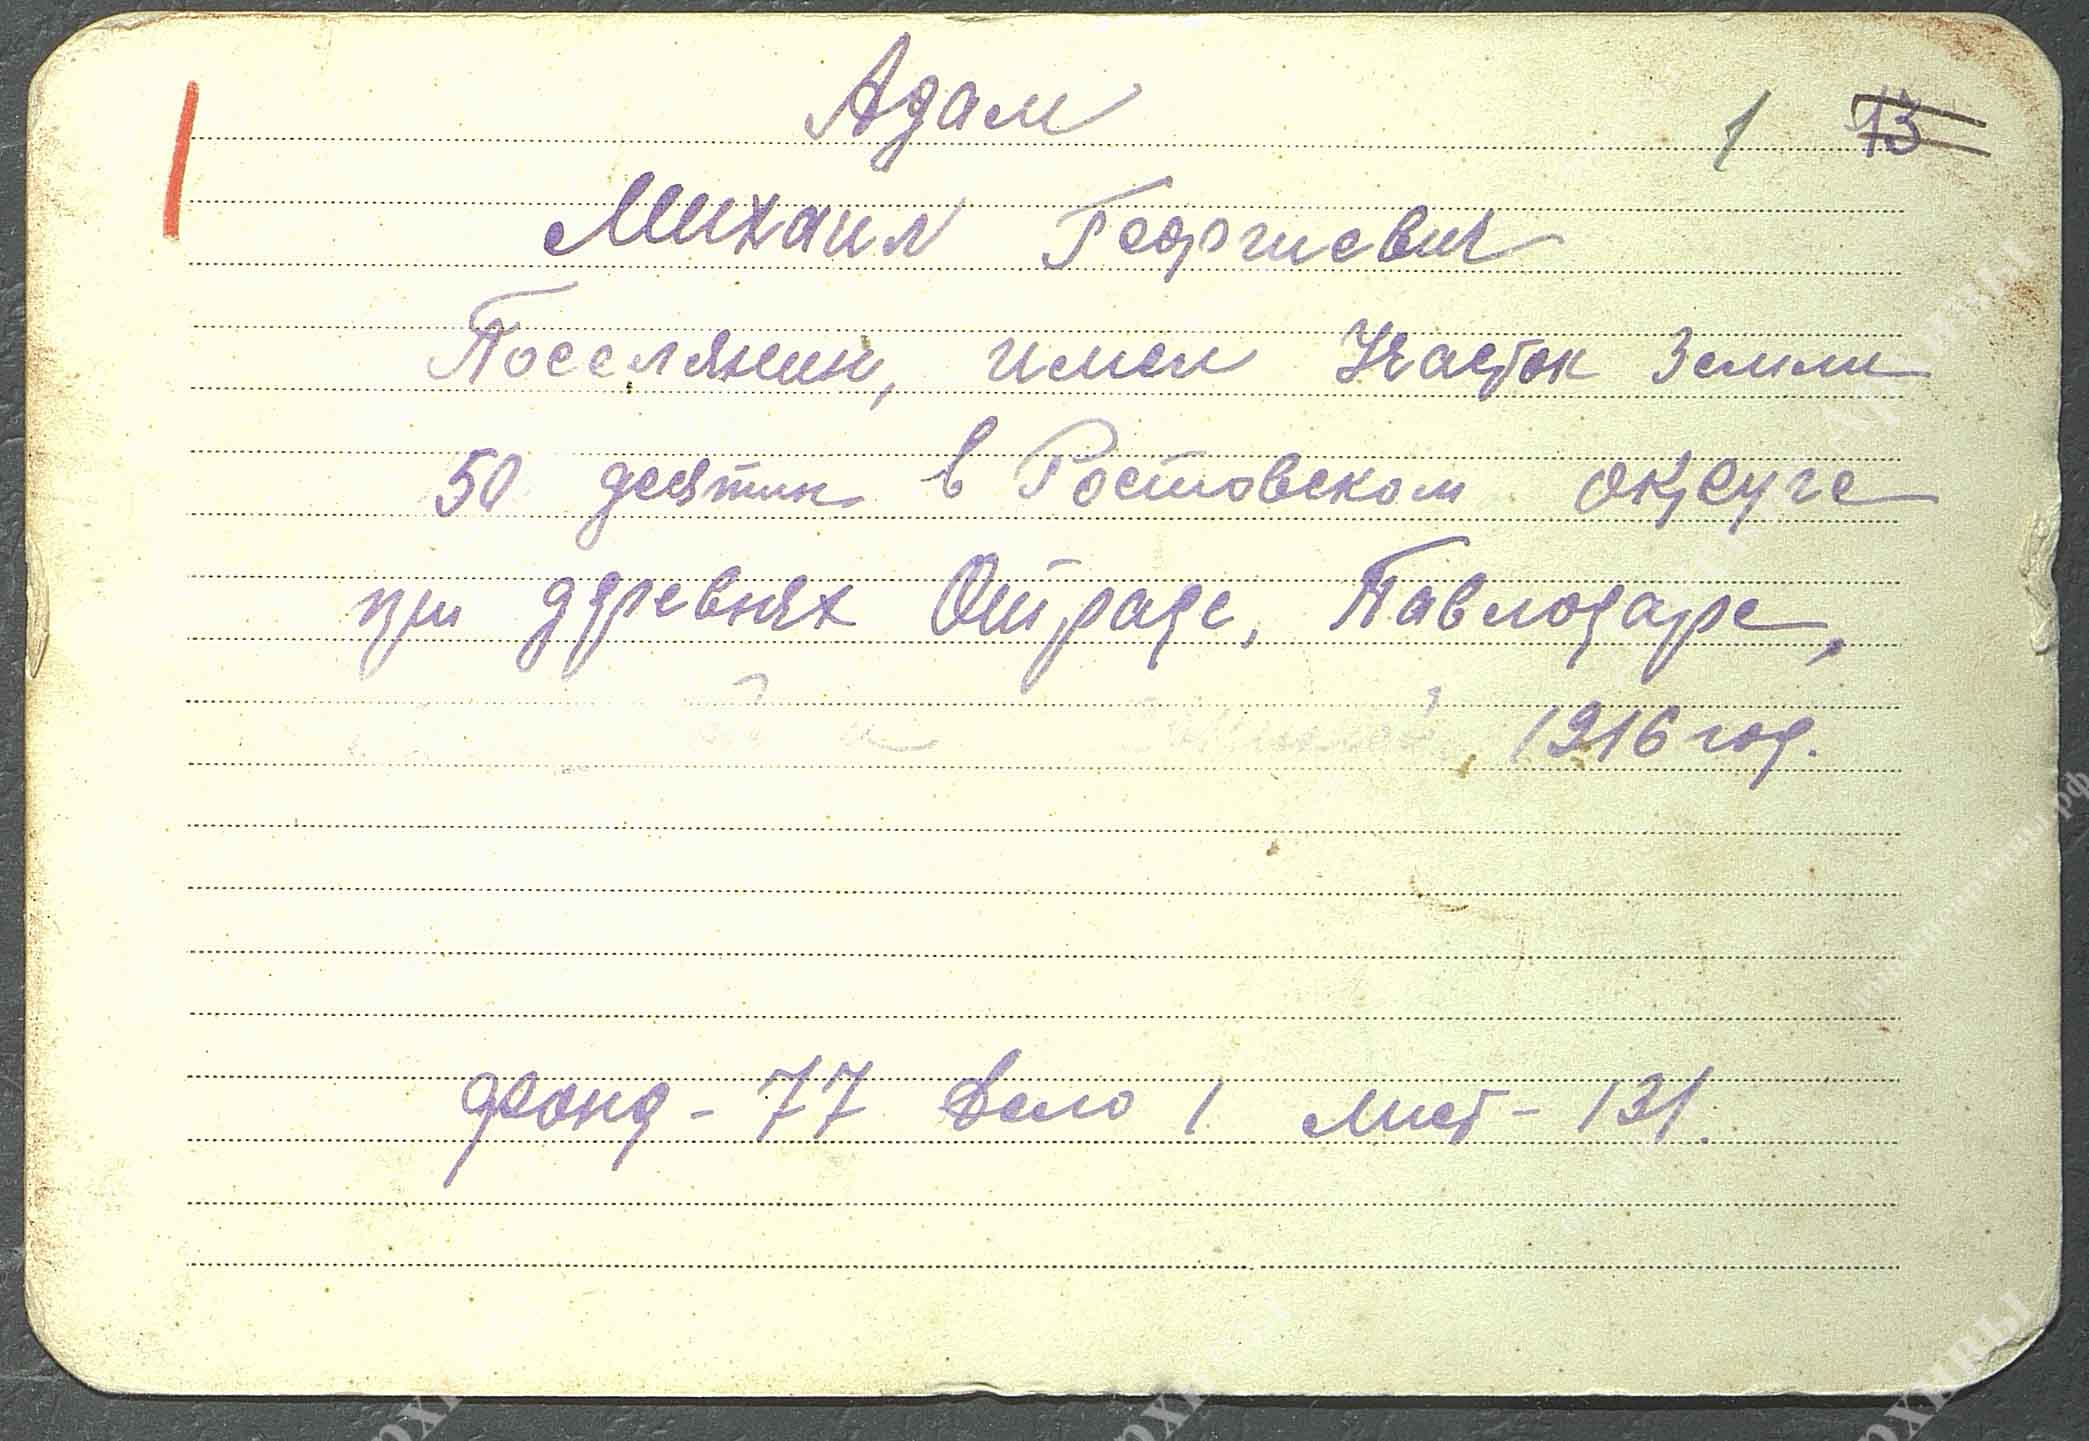 Адам
1 13
Михаил Георгиевич
Поселянин, имел Участок Земли
50 десятин в Ростовском округе
при деревнях Отраде, Павлодаре,
и 1916 год.
фонд - 77 Дело 1 Лист - 131.
Архивы
Архивы
Архивы
Архивы